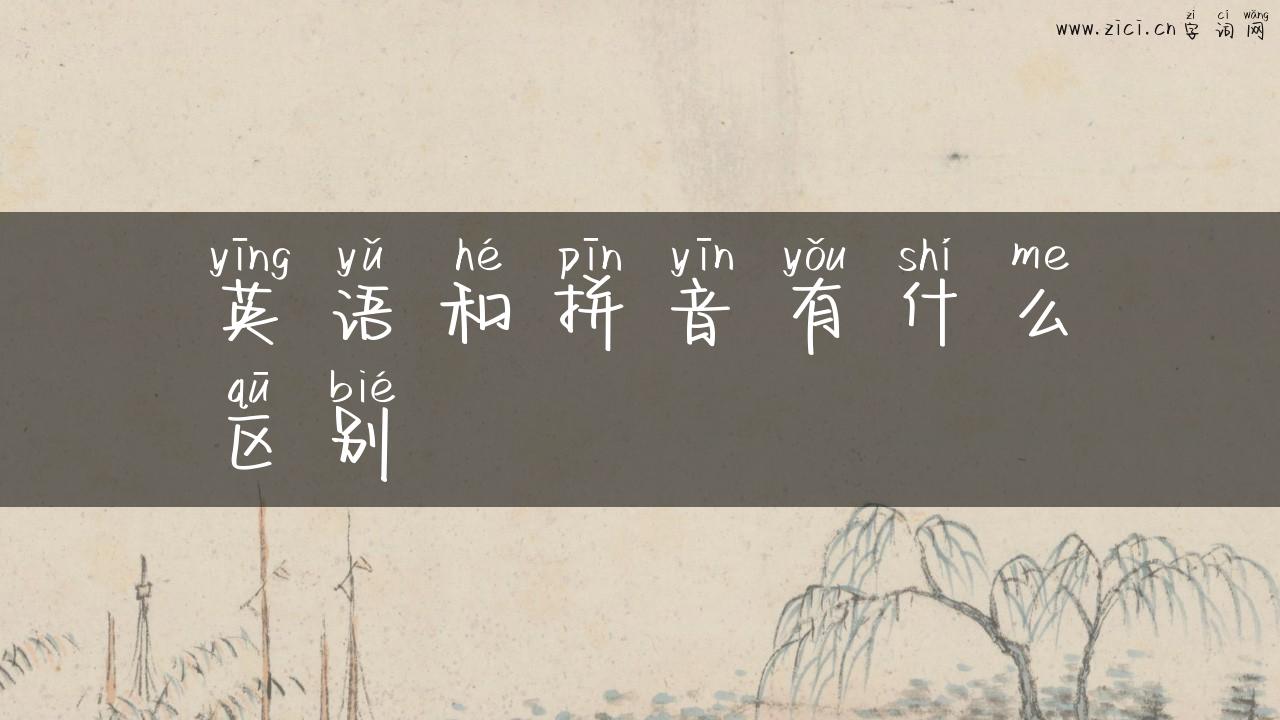 zì cí wǎng
www.zici.cn 字词网
yīng yǔ hé pīn yīn yǒu shí me
英语和拼音有什么
qū bié
区别